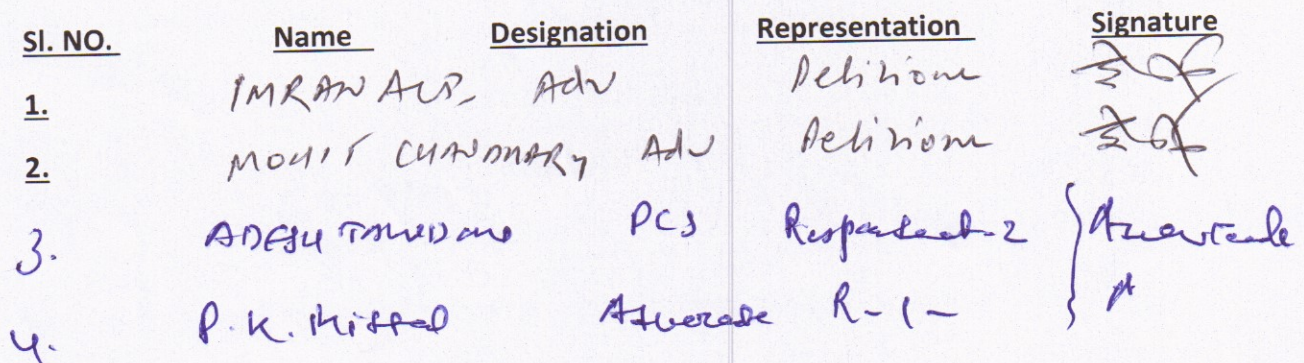 Sl. NO. Name Designation Representation Signature
1. IMRAN ALI Adv Petitioner
2. MOHIT CHAUDHARY Adv Petitioner
3. ADESH TANDON PCS Respondent-2
4. P.K. Mittal Advocate R-1-